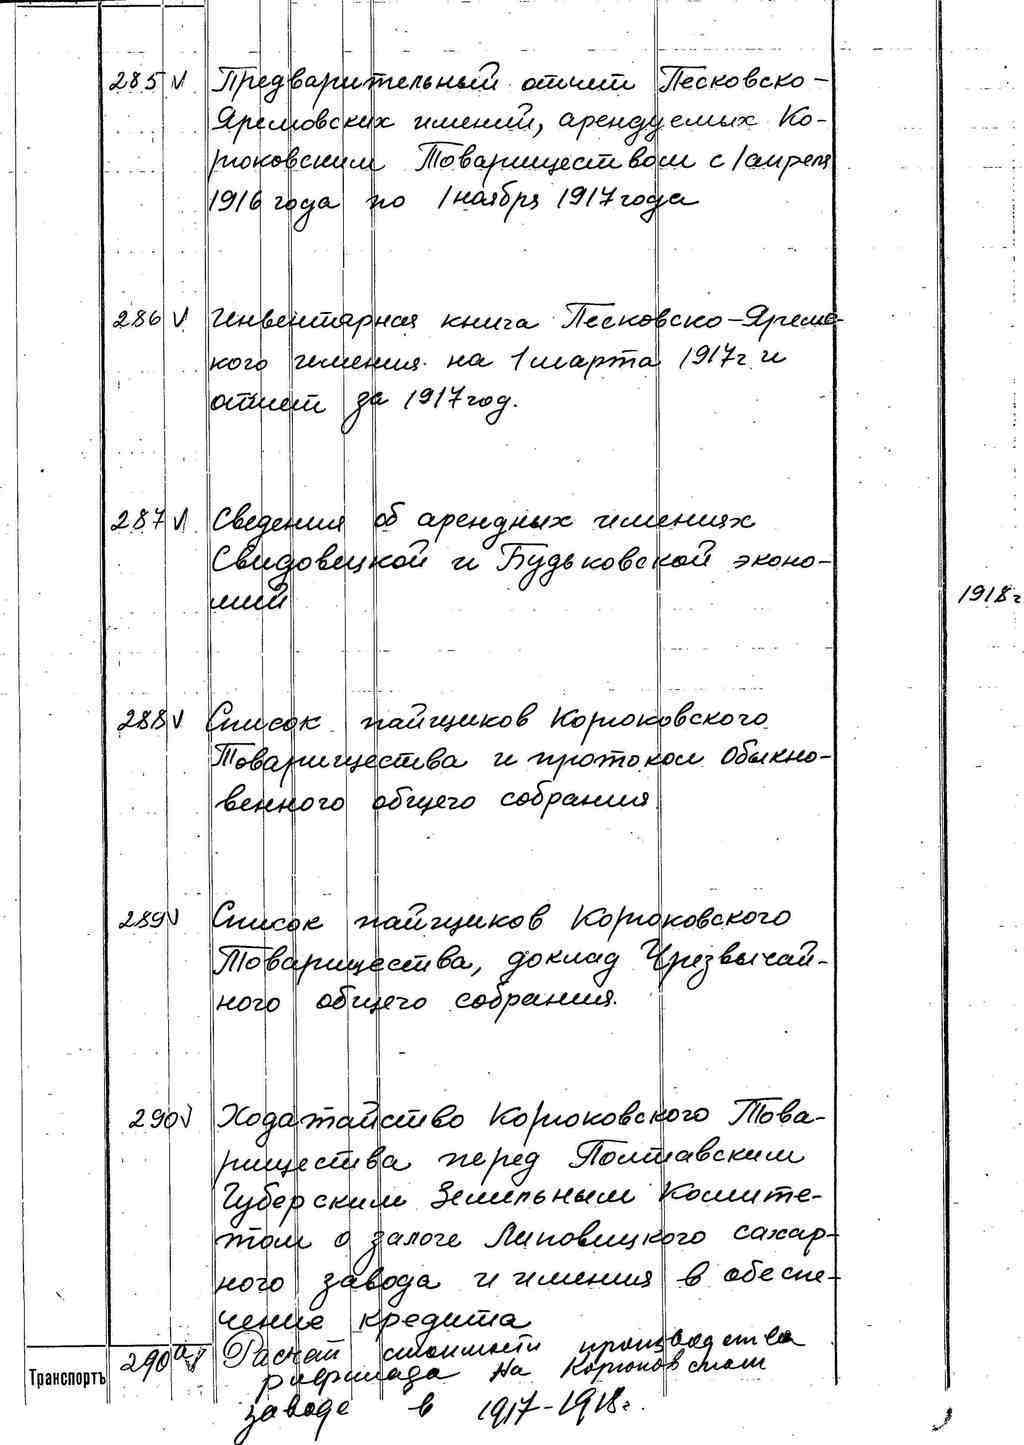 285 V Предварительный отчет Песковско-
Яремовских имений, арендуемых Ко-
рюковским Товариществом с 1 апреля
1916 года по 1 ноября 1917 года
286 V Инвентарная книга Песковско-Яремс-
кого имения на 1 марта 1917 г. и
отчет за 1917 год.
287 V Сведения об арендных имениях
Свидовецкой и Будьковской эконо-
мий
1918 г
288 V Список пайщиков Корюковского
Товарищества и протокол Обыкно-
венного общего собрания.
289 V Список пайщиков Корюковского
Товарищества, доклад Чрезвычай-
ного общего собрания.
290 V Ходатайство Корюковского Това-
рищества перед Полтавским
Губерским Земельным Комите-
том о залоге Линовицкого сахар-
ного завода и имения в обеспе-
чение кредита
290а V Расчет стоимости производства
рафинада на Корюковском
Транспортъ
заводе в 1917-1918 г.